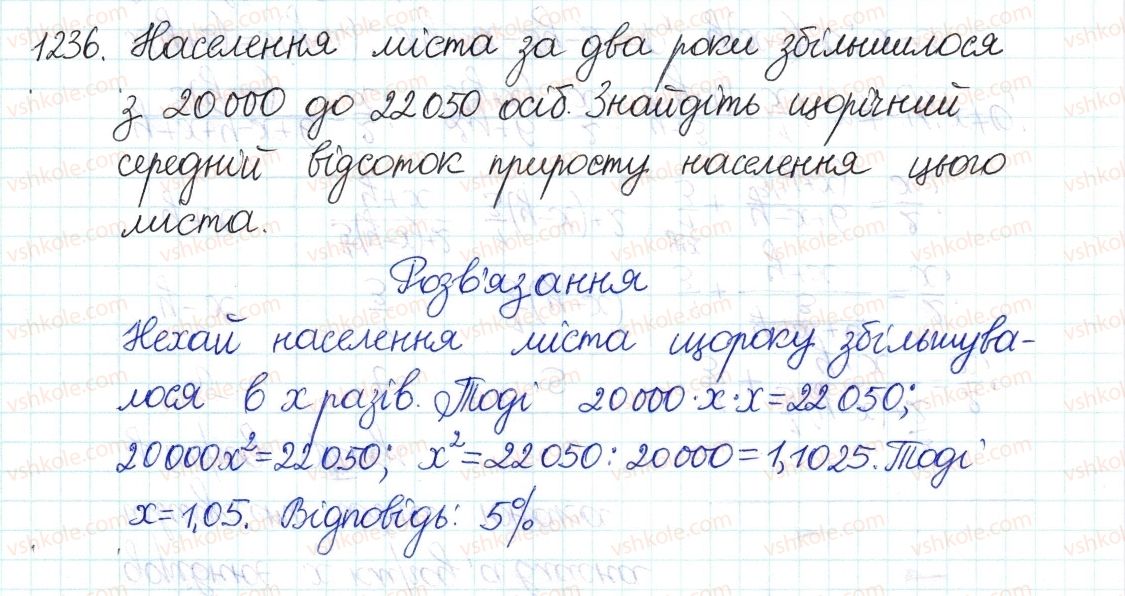 1236. Населення міста за два роки збільшилося
з 20 000 до 22 050 осіб. Знайдіть щорічний
середній відсоток приросту населення цього
міста.
Розв'язання
Нехай населення міста щороку збільшува-
лося в x разів. Тоді 20 000·x·x=22 050;
20 000x²=22 050; x²=22 050:20 000=1,1025. Тоді
x=1,05. Відповідь: 5%